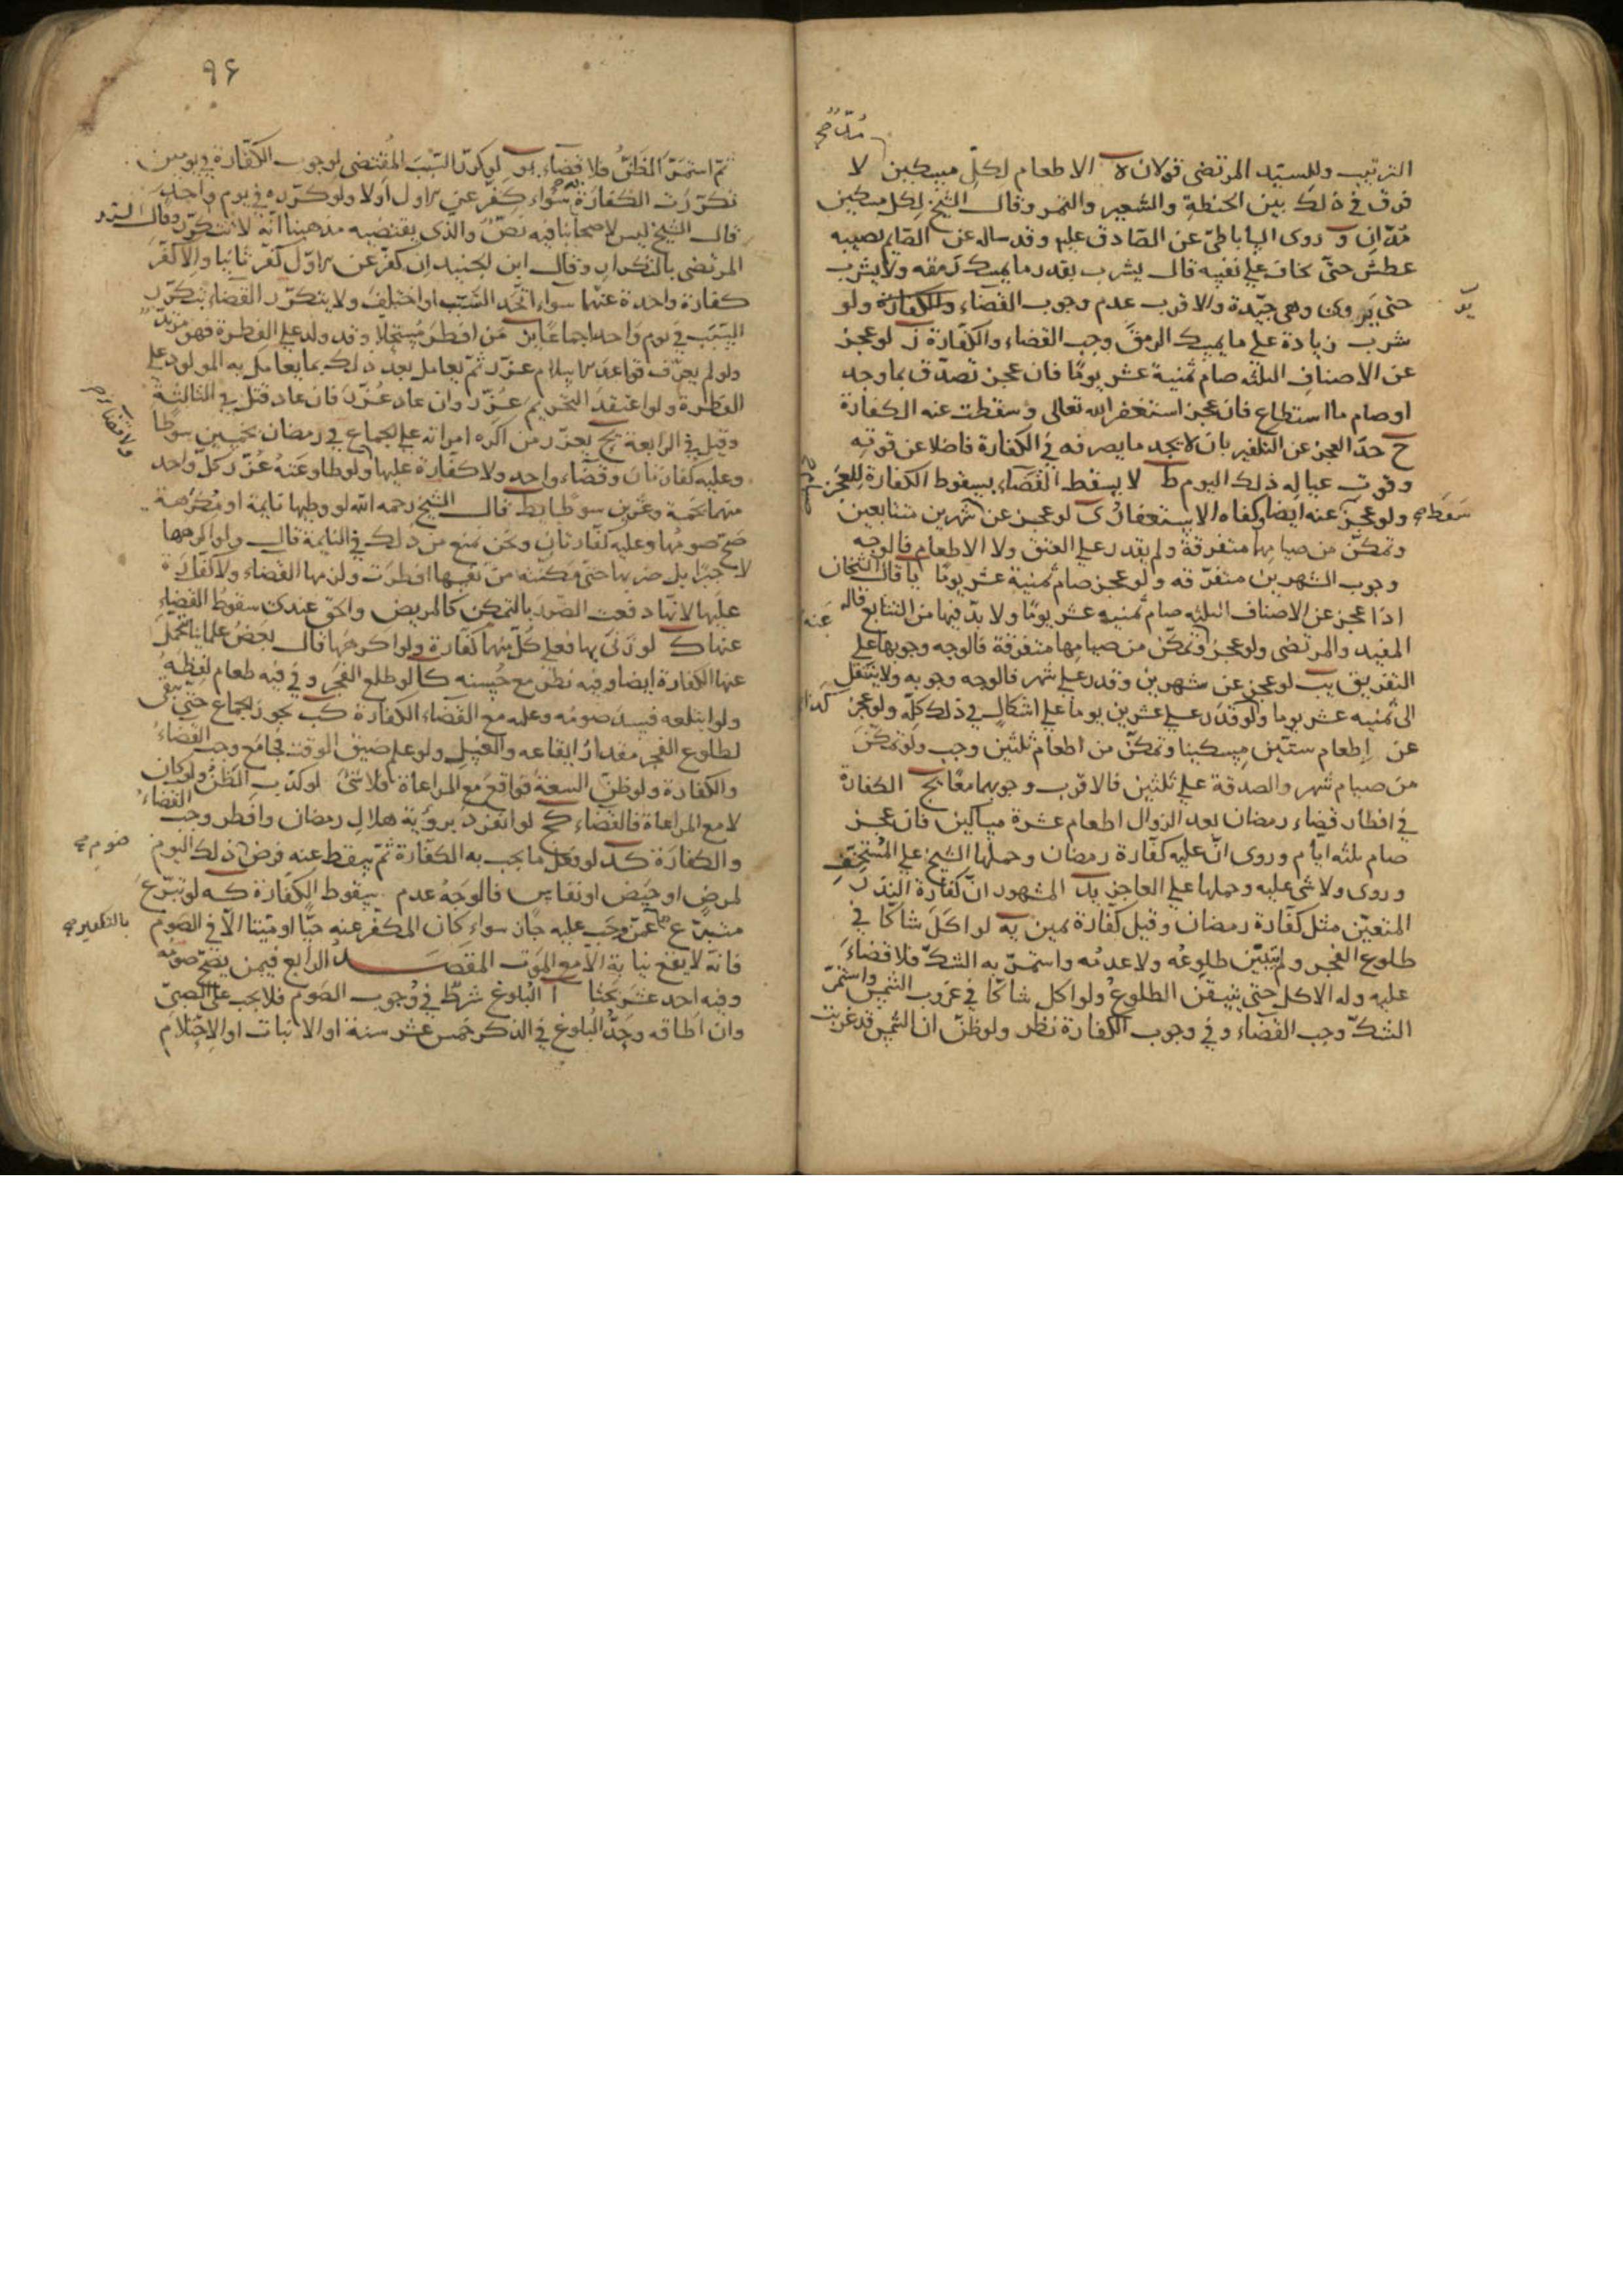 مدّ صح
الترتيب وللسيّد المرتضى قولان ه الاطعام لكلّ مسكين لا
فرق في ذلك بين الحنطة والشعير والتمر وقال الشيخ لكل مسكين
مُدّان و روى الساباطيّ عن الصّادق عليه وقد ساله عن الصّايم يصيبه
عطش حتّى يخاف على نفسه قال يشرب بقدر ما يمسك رمقه ولا يشرب
حتى يروى وهي جيّدة والاقرب عدم وجوب القضاء والكفارة ولو
شرب زيادة على ما يمسك الرمقَ وجب القضاء والكفّارة ز لو عجز
عن الاصناف الثلثه صام ثمنية عشر يومًا فان عجز تصدّق بما وجد
او صام ما استطاع فان عجز استغفر الله تعالى وسقطت عنه الكفارة
ح حدّ العجز عن التكفير بان لا يجد ما يصرفه في الكفارة فاضلا عن قوته
وقوت عياله ذلك اليوم ط لا يسقط القضاء بسقوط الكفارة للعجز
ولو عجز عنه ايضا وكفاه الاستغفار ى لو عجز عن شهرين متتابعين
سقط صح
وتمكّن من صيامها متفرقة ولم يقدر على العتق ولا الاطعام فالوجه
وجوب الشهرين متفرّقه ولو عجز صام ثمنية عشر يومًا يا قال الشيخان
اذا عجز عن الاصناف الثلثه صام ثمنيه عشر يومًا ولا بدّ فيها من التتابع قاله
المفيد والمرتضى ولو عجز وتمكّن من صيامها متفرقة فالوجه وجوبها على
التفريق يب لو عجز عن شهرين وقدر على شهر فالوجه وجوبه ولا ينتقل
الى ثمنيه عشر يوما ولو قدر على عشرين يوما على اشكال في ذلك كلّه ولو عجز
عن اطعام ستّين مسكينا وتمكّن من اطعام ثلثين وجب ولو تمكّن
من صيام شهر والصدقة على ثلثين فالاقرب وجوبهما معًا يج الكفارة
في افطار قضاء رمضان بعد الزوال اطعام عشرة مساكين فان عجز
صام ثلثه ايّام وروى انّ عليه كفّارة رمضان وحملها الشيخ على المستخفّ
وروى ولا شى عليه وحملها على العاجز يد المشهور انّ كفّارة النذر
المتعيّن مثل كفّارة رمضان وقيل كفّارة يمين يه لو اكَلَ شاكّا في
طلوع الفجر ولم يتبيّن طلوعُه ولا عدمُه واستمرّ به الشكّ فلا قضاء
عليه وله الاكل حتّى يتيقّن الطلوع ولو اكل شاكّا في غروب الشمس واستمرّ
الشكّ وجب القضاء وفي وجوب الكفارة نظر ولو ظنّ ان الشمس قد غربت
٩٤
ثمّ استمرّ الظنّ فلا قضاء يو لو كرّر السّبب المُقتضى لوجوب الكفّارة في يومين
تكرّرَت الكفارة سواء كفّر عن الاول اولا ولو كرّره في يوم واحد
قال الشيخ ليس لاصحابنا فيه نصّ والذى يقتضيه مذهبنا انّه لا تتكرّر وقال السّيد
المرتضى بالتكرار وقال ابن الجنيد ان كفّر عن الاوّل كفّر ثانيا والّا كفّر
كفارة واحدة عنهما سواء اتّحد السّبب او اختلف ولا يتكرّر القضاء بتكرّر
السّبب في يوم واحد اجماعًا يز من افطر مستحلّا وقد ولد على الفطرة فهو مرتدّ
ولو لم يعرف قواعد الاسلام عزّر ثمّ يعامل بعد ذلك بما يعامل به المولود على
الفطرة ولو اعتقد التحريم عُزّر وان عاد عُزّر فان عاد قتل في الثالثة
وقيل في الرابعة يح يعزّر من اكره امراته على الجماع في رمضان بخمسين سوطًا
وعليه كفّارتان وقضاء واحد ولا كفّارة عليها ولو طاوعته عُزّر كلّ واحد
ولا قضاء صح
منهما بخمسة وعشرين سوطا يط قال الشيخ رحمه الله لو وطيها نايمة او مكرهة
صحّ صومُها وعليه كفّارتان ونحن نمنع من ذلك في النايمة قال ولو اكرهها
لا جبرًا بل ضربها حتى مكّنته من نفسها افطرت ولزمها القضاء ولا كفّارة
عليها لانّها دفعت الضّرر بالتمكين كالمريض والحقّ عندى سقوط القضاء
عنها ك لو زنى بها فعلى كُلّ منهما كفّارة ولو اكرهها قال بعضُ علمائنا يتحمّل
عنها الكفّارة ايضا وفيه نظر مع حُسنه كا لو طلع الفجر وفي فيه طعام لفظه
ولو ابتلعه فسد صومُه وعليه مع القضاء الكفارة كب يجوز الجماع حتى يبقى
لطلوع الفجر مقدار ايقاعه والغسل ولو علم ضيق الوقت فجامع وجب القضاءُ
والكفّارة ولو ظنّ السعة فواقع مع المراعاة فلا شئ لو كذب الظنُّ ولو كان
لا مع المراعاة فالقضاء كج لو انفرد برؤية هلال رمضان وافطر وجب القضاءُ
والكفارة كد لو فعل ما يجب به الكفّارة ثمّ سقط عنه فرض ذلك اليوم
صوم صح
لمرض او حيض او نفاس فالوجهُ عدم سقوط الكفّارة كه لو تبرّع
متبرّع عمّن وجب عليه جاز سواء كان المكفّر عنه حيًّا او ميّتا الّا في الصّوم
بالتكفير صح
فانّه لا يقع نيابة الّا مع الموت المقصدُ الرّابع فيمن يصحّ صومه
وفيه احد عشر بحثا ا البلوغ شرط في وُجوب الصّوم فلا يجب على الصّبىّ
وان اطاقه وحدُّ البلوغ في الذكر خمس عشر سنة او الانبات او الاحتلام